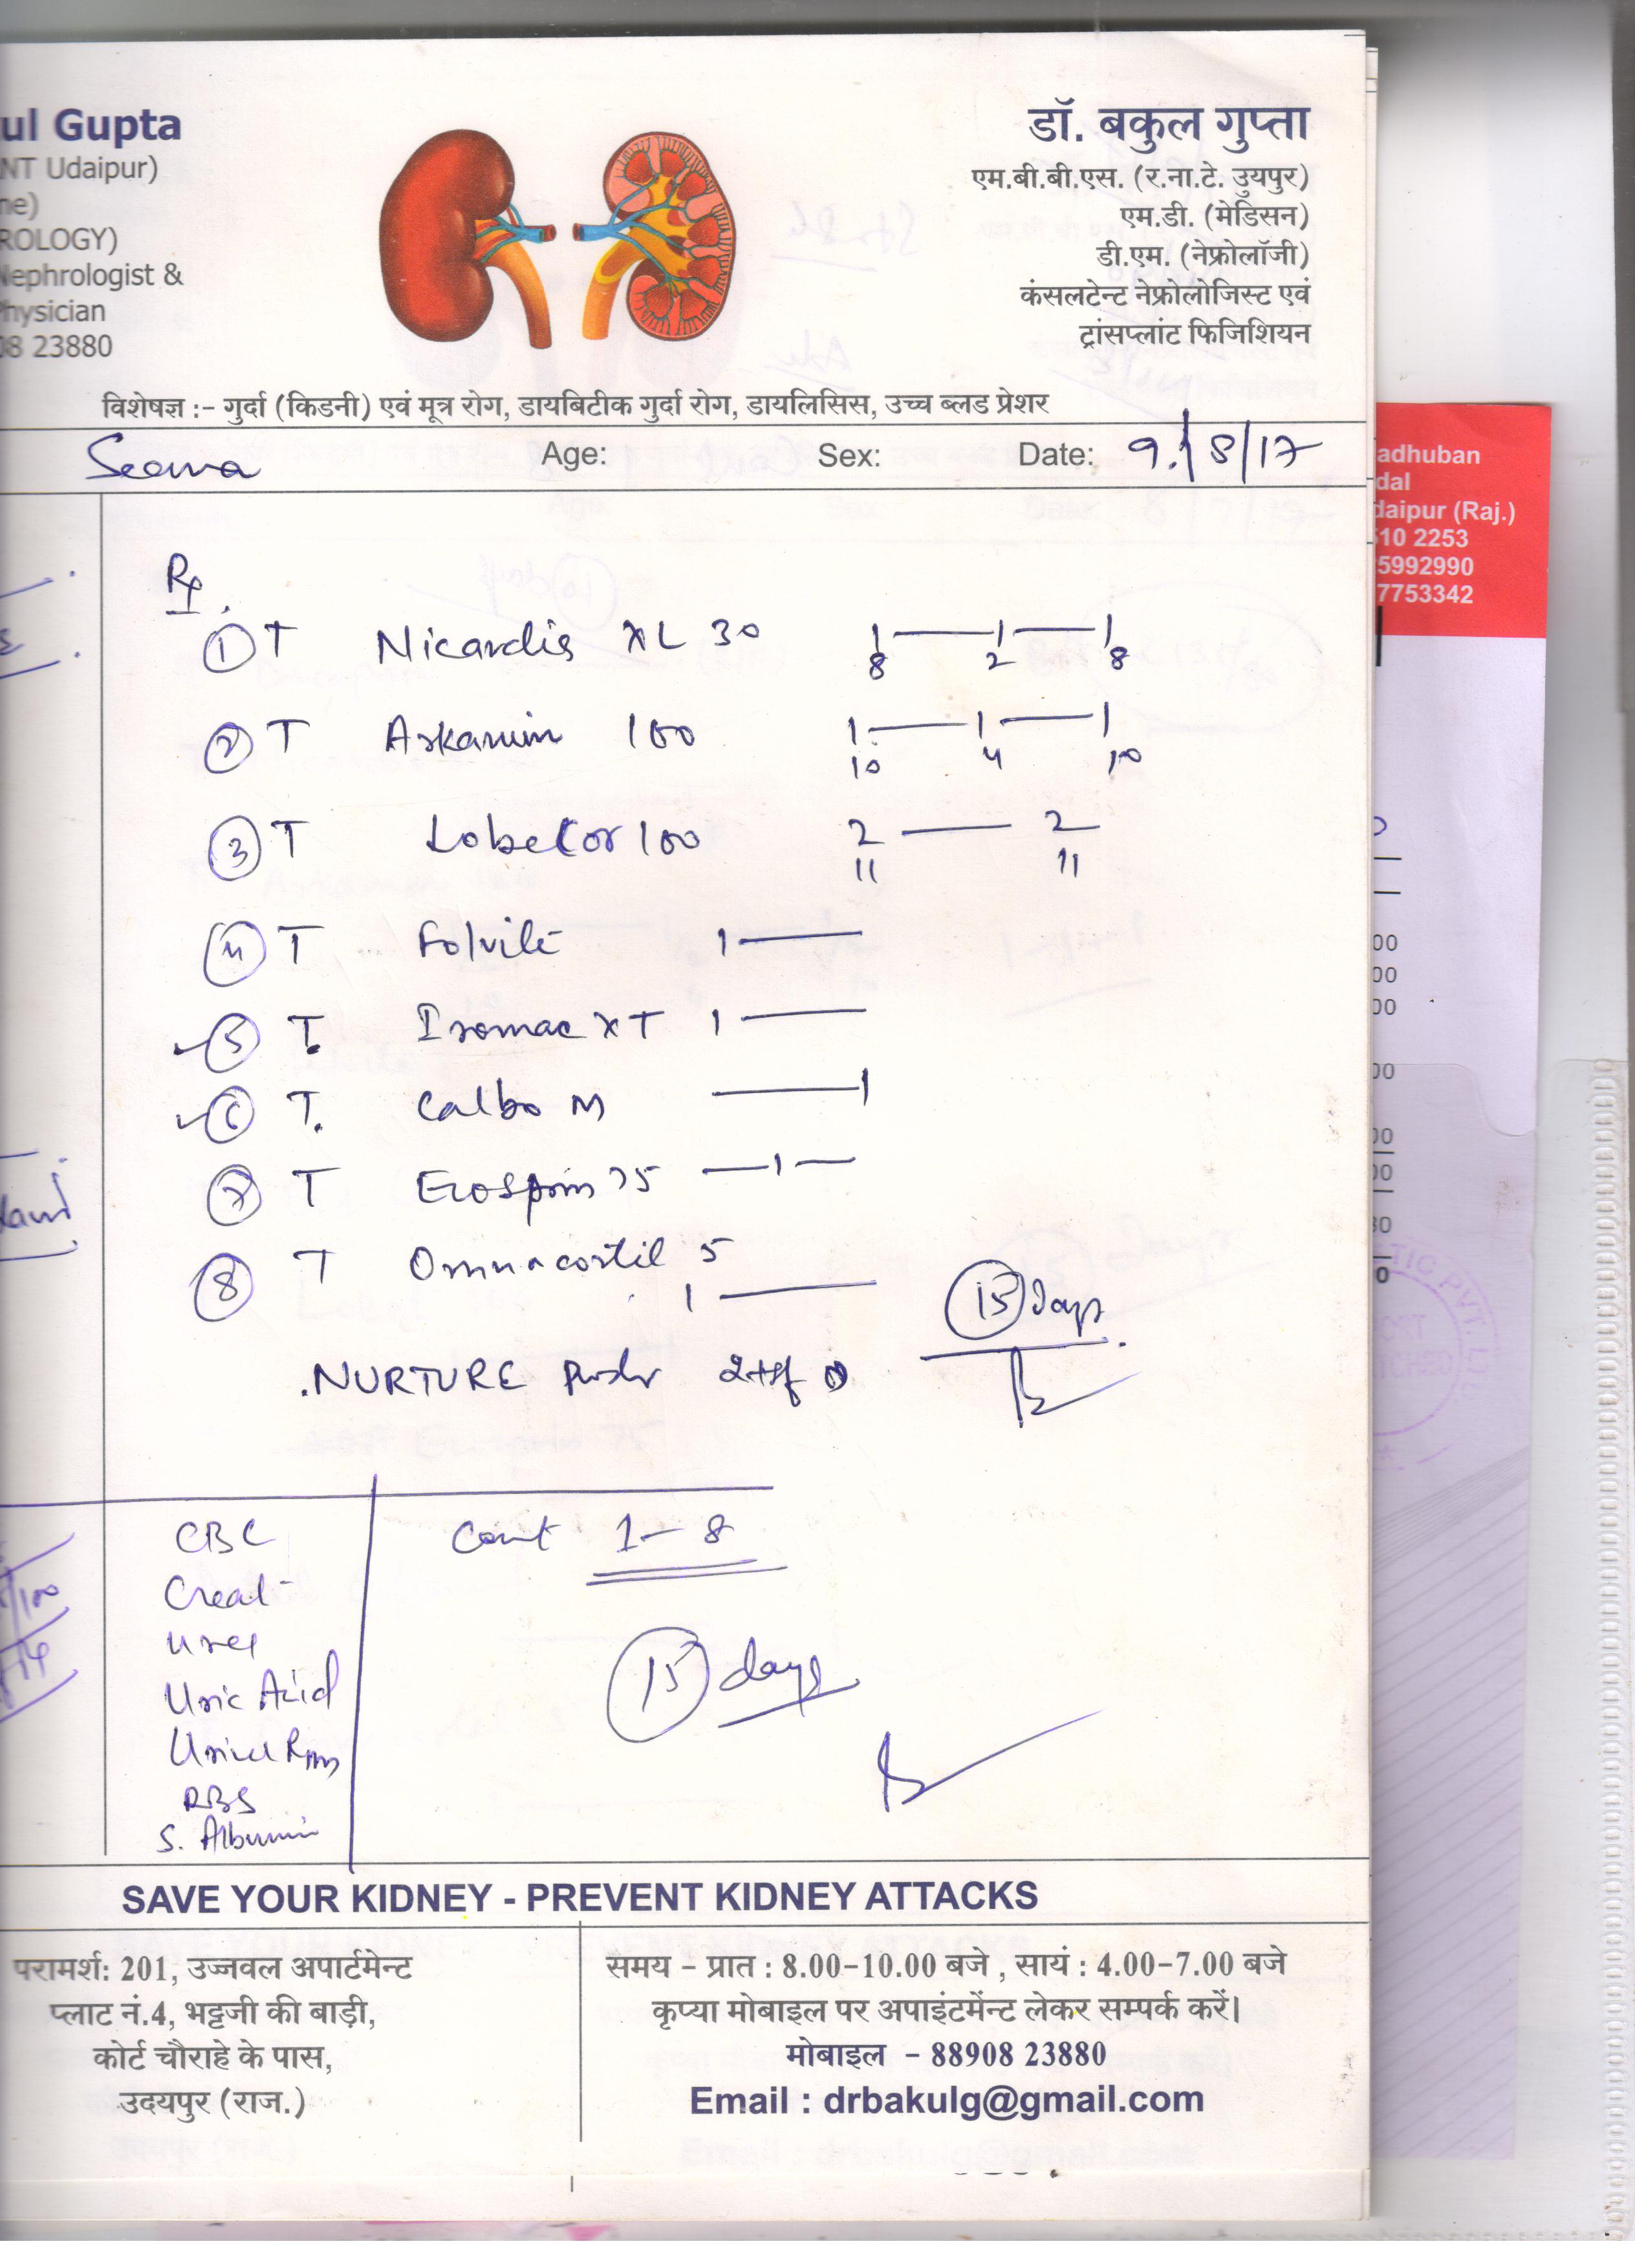 ul Gupta
NT Udaipur)
ne)
ROLOGY)
Nephrologist &
hysician
08 23880
डॉ. बकुल गुप्ता
एम.बी.बी.एस. (र.ना.टे. उुयपुर)
एम.डी. (मेडिसन)
डी.एम. (नेफ्रोलॉजी)
कंसलटेन्ट नेफ्रोलोजिस्ट एवं
ट्रांसप्लांट फिजिशियन
विशेषज्ञ :- गुर्दा (किडनी) एवं मूत्र रोग, डायबिटीक गुर्दा रोग, डायलिसिस, उच्च ब्लड प्रेशर
Age: Sex: Date: 9/8/17
adhuban
dal
daipur (Raj.)
10 2253
5992990
7753342
Rx
1 T Nicardis XL 30 1 — 1 — 1
8 2 8
2 T Arkamin 100 1 — 1 — 1
10 4 10
3 T Lobecor 100 2 — 2
11 11
4 T Folvite 1 —
5 T. XT 1 —
6 T. Calbo M — 1
7 T Ecosprin 75 — 1 —
8 T Omnacortil 5
1 —
15 days
NURTURE
CBC
Creat
Urea
Uric Acid
RBS
S. Albumin
Cont 1 - 8
15 days
SAVE YOUR KIDNEY - PREVENT KIDNEY ATTACKS
परामर्श: 201, उज्जवल अपार्टमेन्ट
प्लाट नं.4, भट्टजी की बाड़ी,
कोर्ट चौराहे के पास,
उदयपुर (राज.)
समय - प्रात : 8.00-10.00 बजे , सायं : 4.00-7.00 बजे
कृप्या मोबाइल पर अपाइंटमेंन्ट लेकर सम्पर्क करें।
मोबाइल - 88908 23880
Email : drbakulg@gmail.com